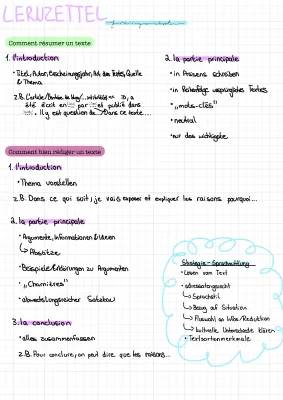 LERNZETTEL
Comment résumer un texte
1. l'introduction
• Titel, Autor, Erscheinungsjahr, Art des Textes, Quelle
& Thema
z.B. L'article/
été écrit en par et publié dans
Il y est question de Dans ce texte...
2. la partie principale
• in Präsens schreiben
• in Reihenfolge ursprüngliches Textes
• „mots-clés"
• neutral
• nur das wichtigste
Comment bien rédiger un texte
1. l'introduction
• Thema vorstellen
z.B. Dans ce qui suit, je vais exposer et expliquer les raisons pourquoi...
2. la partie principale
• Argumente, Informationen & Ideen
↳ Absätze
• Beispiele/Erklärungen zu Argumenten
• „Charnières"
• abwechslungsreicher Satzbau
3. la conclusion
• alles zusammenfassen
z.B. Pour conclure, on peut dire que les raisons...
Strategie - Sprachmittlung
• Lesen vom Text
• adressatengerecht
↳ Sprachstil
↳ Bezug auf Situation
↳ Auswahl an Infos/Reduktion
↳ kulturelle Unterschiede klären
• Textsortenmerkmale